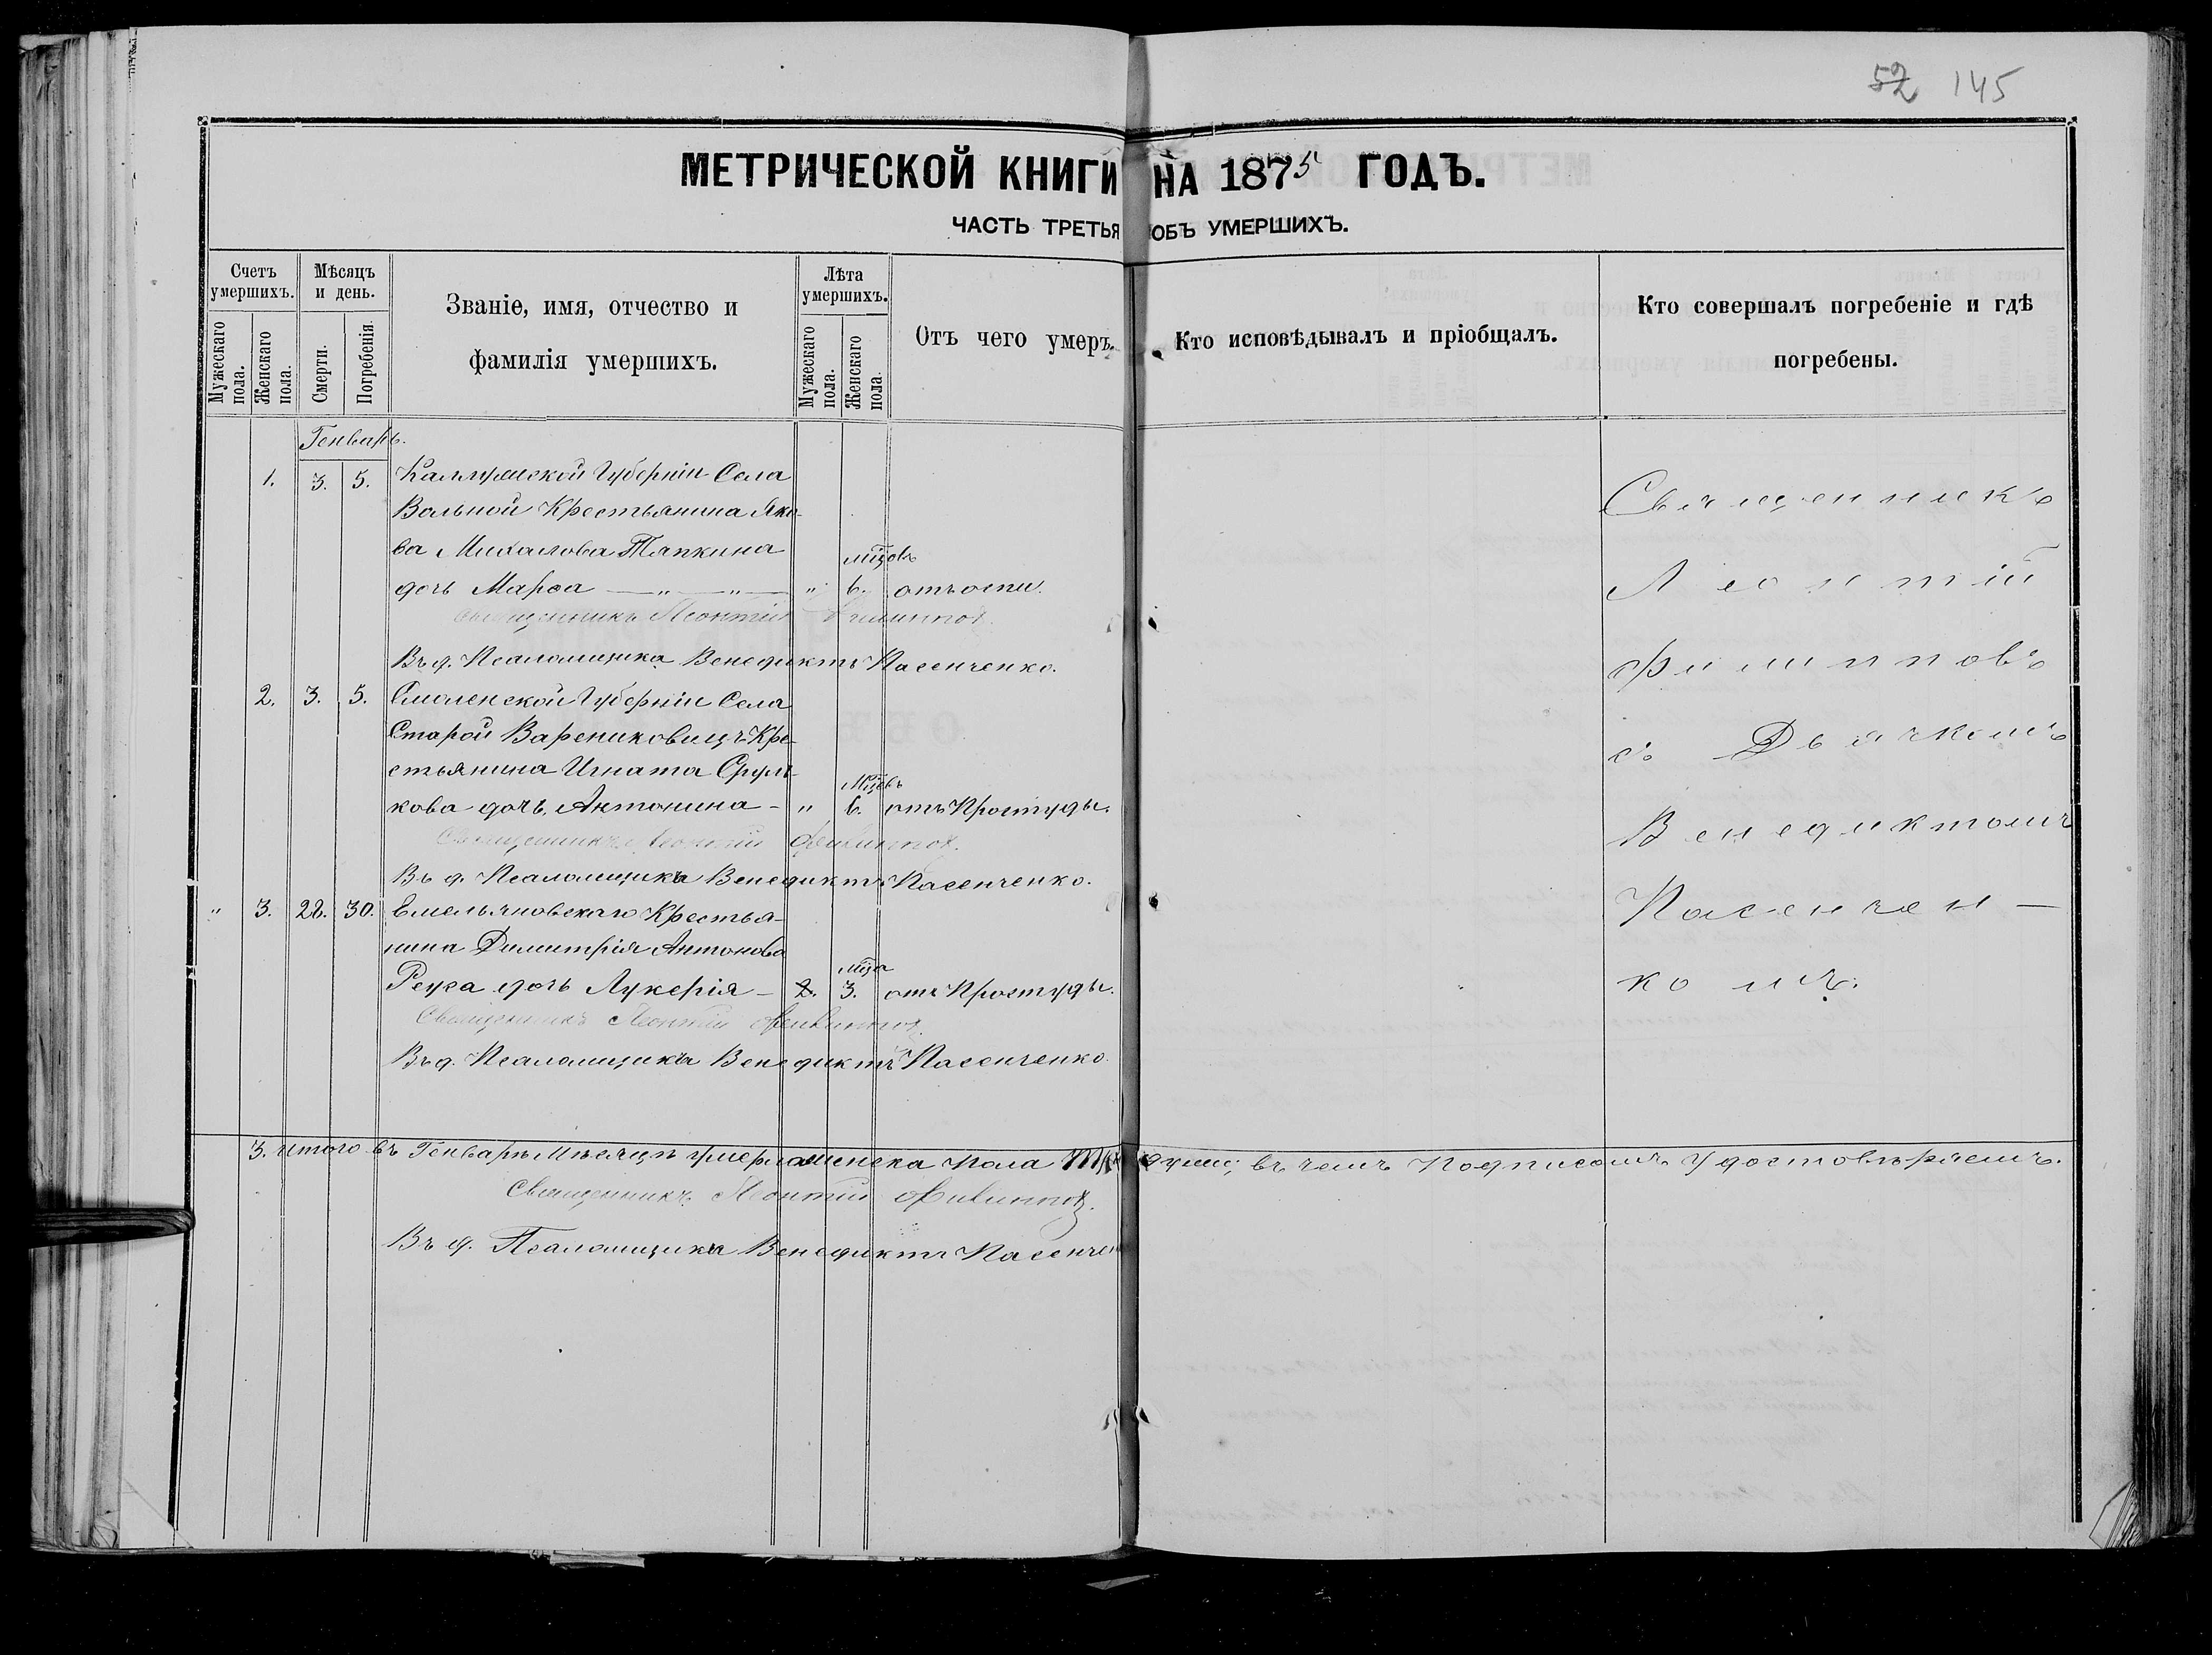 52 145
МЕТРИЧЕСКОЙ КНИГИ НА 1875 ГОДЪ.
ЧАСТЬ ТРЕТЬЯ ОБЪ УМЕРШИХЪ.
Счетъ умершихъ.
Мужескаго пола.
Женскаго пола.
Мѣсяцъ и день.
Смерти.
Погребенія.
Званіе, имя, отчество и
фамилія умершихъ.
Лѣта умершихъ.
Мужескаго пола.
Женскаго пола.
Отъ чего умеръ.
Кто исповѣдывалъ и пріобщалъ.
Кто совершалъ погребеніе и гдѣ
погребены.
Генварь.
1. 3. 5. Губерніи Села
Вольной Крестьянина Яко-
ва Михалова Тяпкина мцовъ
дочь Марѳа — „ — „ — „ 6. отъ оспи.
Священникъ Леонтій Филиппов.
Въ д. Псаломщика Венедиктъ Пасенченко.
2. 3. 5. Смоленской Губерніи Села
Старой Варениковищъ Кре-
стьянина Игната мцевъ
кова дочь Антонина - „ 6. отъ Простуды.
Священникъ Леонтій Филиппов.
Въ д. Псаломщика Венедиктъ Пасенченко.
„ 3. 28. 30. Емельяновскаго Крестья-
нина Димитрія Антонова мца
дочь Лукерія - 2. 3. отъ Простуды.
Священникъ Леонтій Филиппов.
Въ д. Псаломщика Венедиктъ Пасенченко
Священникъ
Леонтій
Филипповъ
съ Дьячкомъ
Венедиктомъ
Пасенчен-
комъ.
3. Итого въ Генварѣ Мѣсяцѣ умерло женска Пола душ; въ чемъ Подписомъ Удостовѣряемъ.
Священникъ Леонтій Филиппов.
Въ д. Псаломщика Венедиктъ Пасенчен